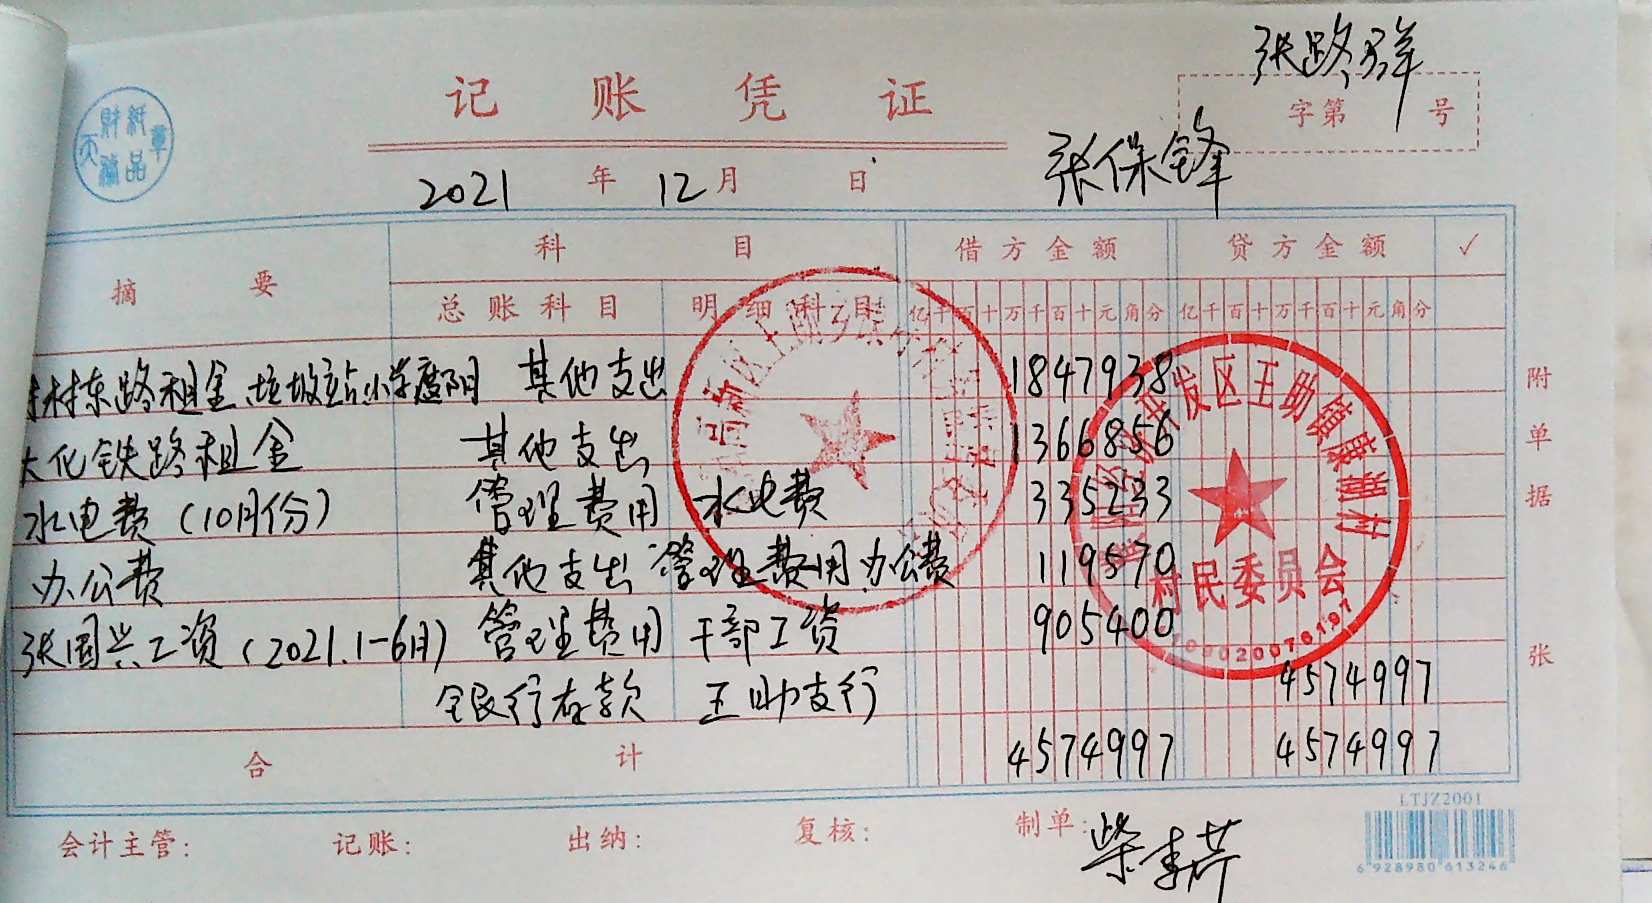 张路群
记账凭证
字第 号
财纸品章
张保锋
2021 年 12 月 日
摘要 科目 借方金额 贷方金额 √
总账科目 明细科目 亿千百十万千百十元角分 亿千百十万千百十元角分
村东路租金 垃圾站 小学 其他支出 1847938
大化铁路租金 其他支出 1366856
水电费(10月份) 管理费用 水电费 335233
办公费 其他支出 管理费用办公费 119570
张国兴工资(2021.1-6月) 管理费用 干部工资 905400
银行存款 王助支行 4574997
合计 4574997 4574997
附单据 张
开发区王助镇康湖村
村民委员会
会计主管: 记账: 出纳: 复核: 制单:
LTJZ2001
6 928980 613246